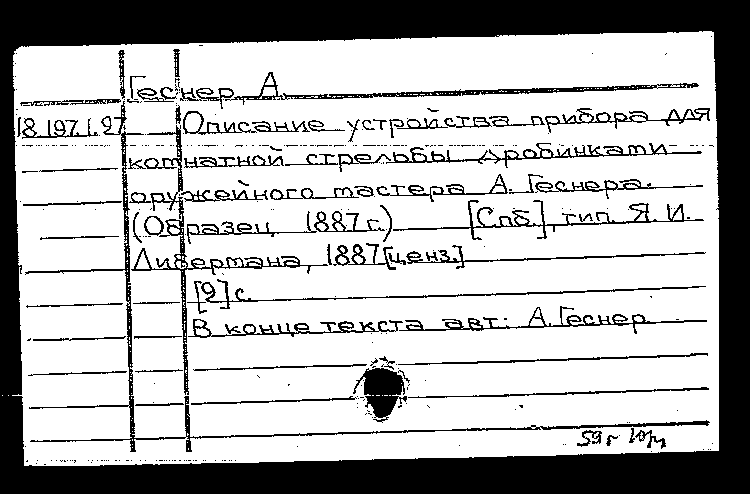 Геснер, А.
18.197.1.97 Описание устройства прибора для
комнатной стрельбы дробинками
оружейного мастера А. Геснера.
(Образец 1887 г.) [Спб.], тип. Я. И.
Либермана, 1887 [ценз.]
[9] с.
В конце текста авт.: А. Геснер
59 г